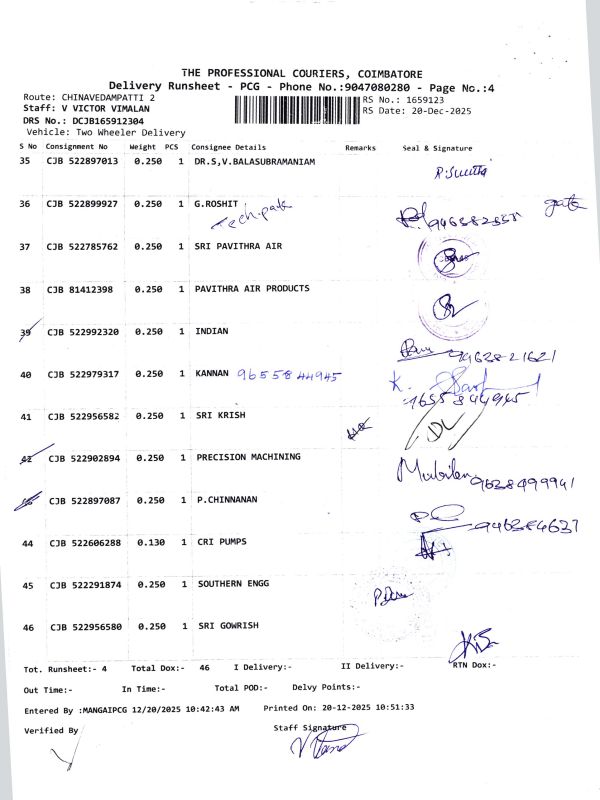 THE PROFESSIONAL COURIERS, COIMBATORE
Delivery Runsheet - PCG - Phone No.:9047080280 - Page No.:4
Route: CHINAVEDAMPATTI 2
RS No.: 1659123
Staff: V VICTOR VIMALAN
RS Date: 20-Dec-2025
DRS No.: DCJB165912304
Vehicle: Two Wheeler Delivery
S No Consignment No Weight PCS Consignee Details Remarks Seal & Signature
35 CJB 522897013 0.250 1 DR.S,V.BALASUBRAMANIAM
36 CJB 522899927 0.250 1 G.ROSHIT
Tech-park
37 CJB 522785762 0.250 1 SRI PAVITHRA AIR
38 CJB 81412398 0.250 1 PAVITHRA AIR PRODUCTS
39 CJB 522992320 0.250 1 INDIAN
40 CJB 522979317 0.250 1 KANNAN 9655844945
41 CJB 522956582 0.250 1 SRI KRISH
42 CJB 522902894 0.250 1 PRECISION MACHINING
9628499941
CJB 522897087 0.250 1 P.CHINNANAN
44 CJB 522606288 0.130 1 CRI PUMPS
45 CJB 522291874 0.250 1 SOUTHERN ENGG
46 CJB 522956580 0.250 1 SRI GOWRISH
Tot. Runsheet:- 4 Total Dox:- 46 I Delivery:- II Delivery:- RTN Dox:-
Out Time:- In Time:- Total POD:- Delvy Points:-
Entered By :MANGAIPCG 12/20/2025 10:42:43 AM Printed On: 20-12-2025 10:51:33
Verified By Staff Signature